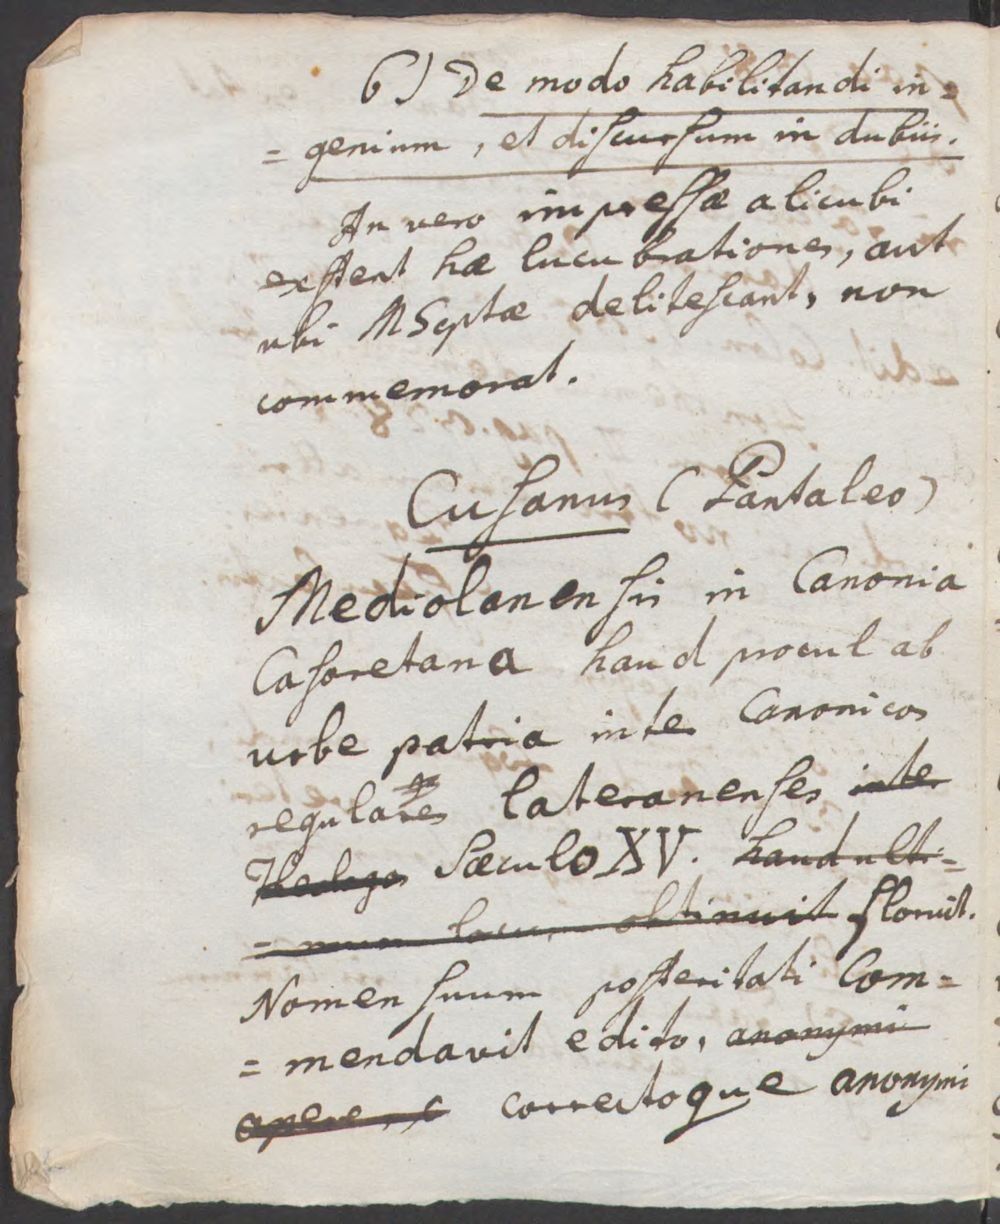 6) De modo habilitandi in=
= genium, et discursum in dubiis.
An vero impressæ alicubi
exstent hæ lucubrationes, aut
ubi MScptæ delitescant, non
commemorat.
Cusanus (Pantaleo)
Mediolanensis in Canonia
Casoretana haud procul ab
urbe patria inter Canonicos
regulares lateranenses inter
Theologos Sæculo XV. haud ulti=
= mum locum obtinuit floruit.
Nomen suum posteritati Com=
= mendavit edito, anonymi
opere, c correctoque anonymi